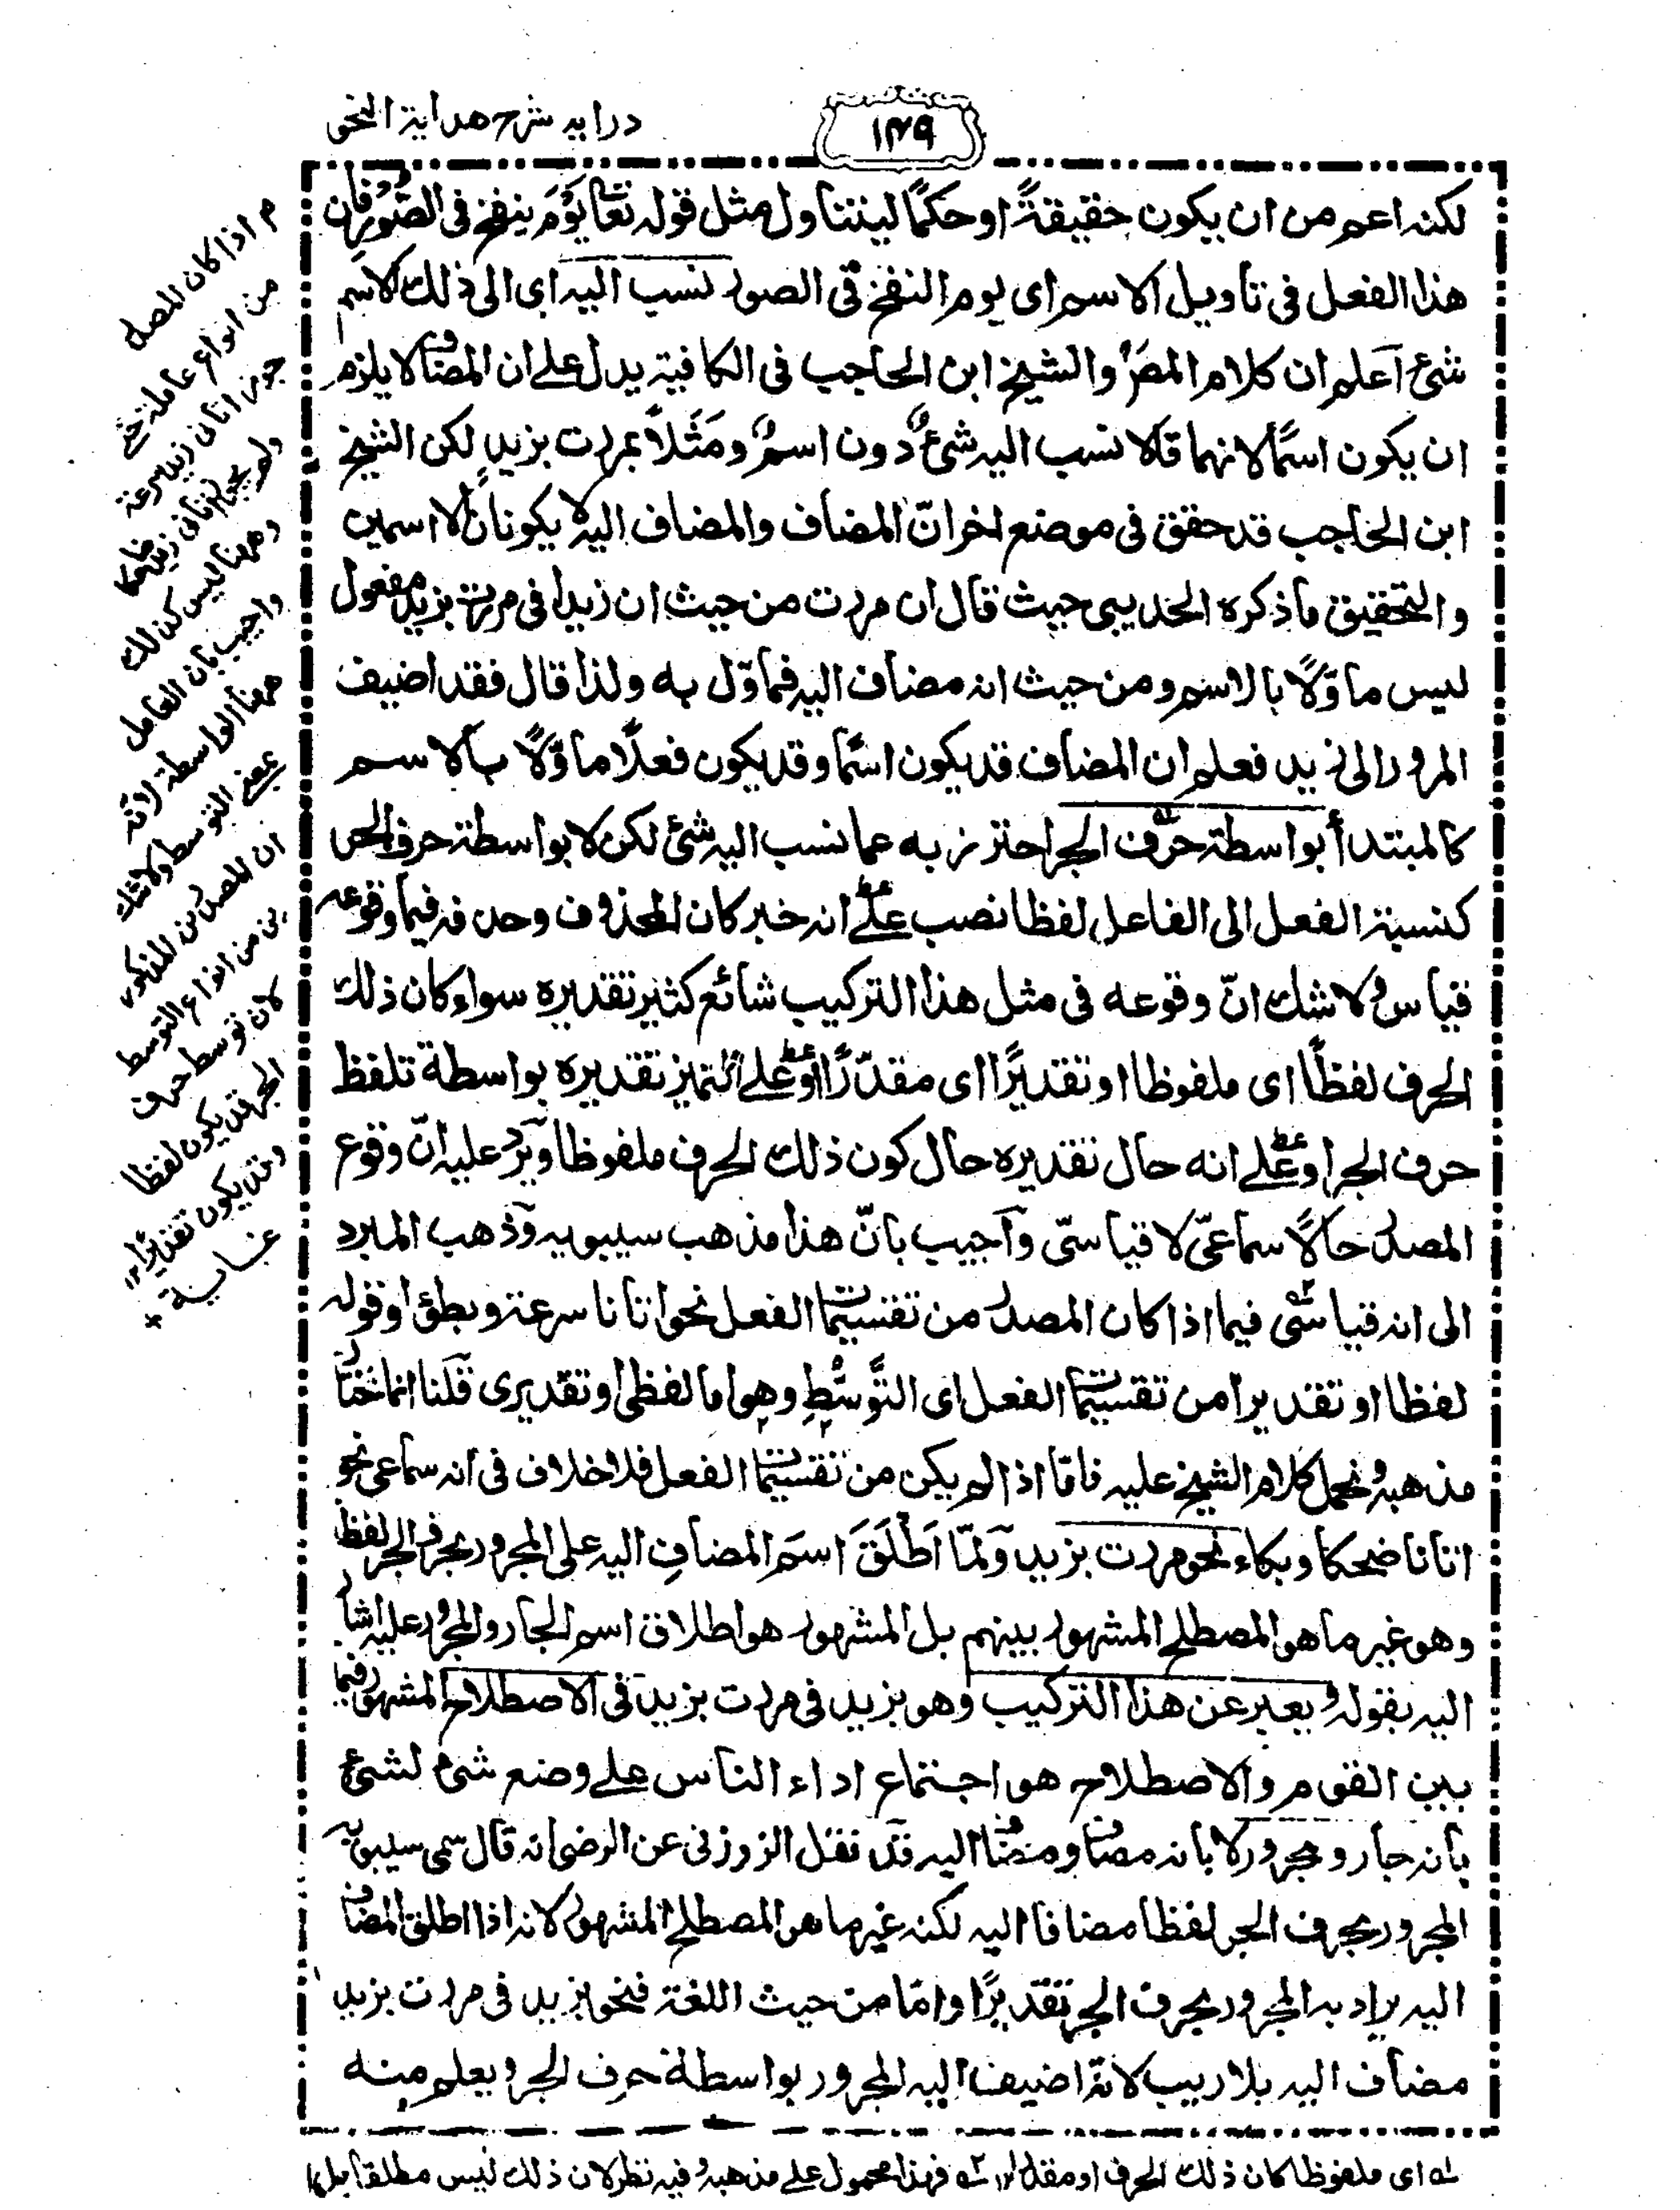 درایہ شرح ہدایۃ النحو
۱۴۹
لکنہ اعم من ان یکون حقیقۃً او حکمًا لیتناول مثل قولہ تعا یَوْمَ ینفخ فی الصُّوْرِ فان
ھذا الفعل فی تأویل الاسم ای یوم النفخ فی الصور نسب الیہ ای الی ذلک الاسم
شئ اعلم ان کلام المصؒ والشیخ ابن الحاجب فی الکافیۃ یدل علے ان المضاف لا یلزم
ان یکون اسمًا لانہما قالا نسب الیہ شئ دون اسم ومَثَّلا بمررت بزیدٍ لکن الشیخ
ابن الحاجب قد حقق فی موضع اخر انّ المضاف والمضاف الیہ لا یکونان الا اسمین
والتحقیق ما ذکرہ الحدیبی حیث قال ان مررت من حیث ان زیدا فی مررت بزید مفعول
لیس ماوّلًا بالاسم ومن حیث انہ مضاف الیہ فماوّل بہ ولذا قال فقد اضیف
المرور الی زید فعلم ان المضاف قد یکون اسمًا وقد یکون فعلًا ماوّلًا بالاسم
کالمبتدأ بواسطۃ حرف الجر احترز بہ عما نسب الیہ شئ لکن لا بواسطۃ حرف الجر
کنسبۃ الفعل الی الفاعل لفظا نصب علے انہ خبر کان المحذوف وحذفہ فیما وقوعہ
قیاس ولا شک انّ وقوعہ فی مثل ھذا الترکیب شائع کثیر تقدیرہ سواء کان ذلک
الحرف لفظًا ای ملفوظا او تقدیرًا ای مقدّرًا او علے التمیز تقدیرہ بواسطۃ تلفظ
حرف الجر او علے انہ حال تقدیرہ حال کون ذلک الحرف ملفوظا ویرد علیہ انّ وقوع
المصدر حالًا سماعیّ لا قیاسیّ وأجیب بانّ ھذا مذھب سیبویہ وذھب المبرد
الی انہ قیاسی فیما اذا کان المصدر من تقسیمات الفعل نحو اتانا سرعۃ وبطؤ او قولہ
لفظا او تقدیرا من تقسیمات الفعل ای التَّوسُّطِ وھو اما لفظی او تقدیری قلنا انما نختار
مذھبہ ونحمل کلام الشیخ علیہ فامّا اذا لم یکن من تقسیمات الفعل فلا خلاف فی انہ سماعی نحو
اتانا ضحکا وبکاء نحو مررت بزید ولمّا اَطْلَقَ اسمَ المضافِ الیہ علی المجرور بحرف الجر لفظا
وھو غیر ما ھو المصطلح المشہور بینہم بل المشہور ھو اطلاق اسم الجار والمجرور علیہ اشار
الیہ بقولہ ویعبر عن ھذا الترکیب وھو بزید فی مررت بزید فی الاصطلاح المشہور فیما
بین القوم والاصطلاح ھو اجتماع اراء الناس علے وضع شئ لشئ
بانہ جار ومجرور لا بانہ مضاف ومضاف الیہ قد نقل الزوزنی عن الرضی انہ قال سمی سیبویہ
المجرور بحرف الجر لفظا مضافا الیہ لکنہ غیر ما ھو المصطلح المشہور لانہ اذا اطلق المضاف
الیہ یراد بہ المجرور بحرف الجر تقدیرًا واما من حیث اللغۃ فنحو بزید فی مررت بزید
مضاف الیہ بلا ریب لانہ اضیف الیہ المجرور بواسطۃ حرف الجر ویعلم منہ
م اذا کان المصدر
من انواع عاملہ
اتانی زید سرعۃ
ولم یجئ اتانی زید ضاحکا
وھھنا لیس کذلک
واجیب بان العامل
ھھنا الواسطۃ لانہ
بمعنے التوسط ولا شک
ان المصدرین المذکورین
من انواع التوسط
لان توسط حرف
الجر قد یکون لفظا
وقد یکون تقدیرًا ۱۲
عنایۃ
لہ ای ملفوظا کان ذلک الحرف او مقدرا ۱۲ ٢ہ فہذا محمول علے مذھبہ وفیہ نظر لان ذلک لیس مطلقا بل